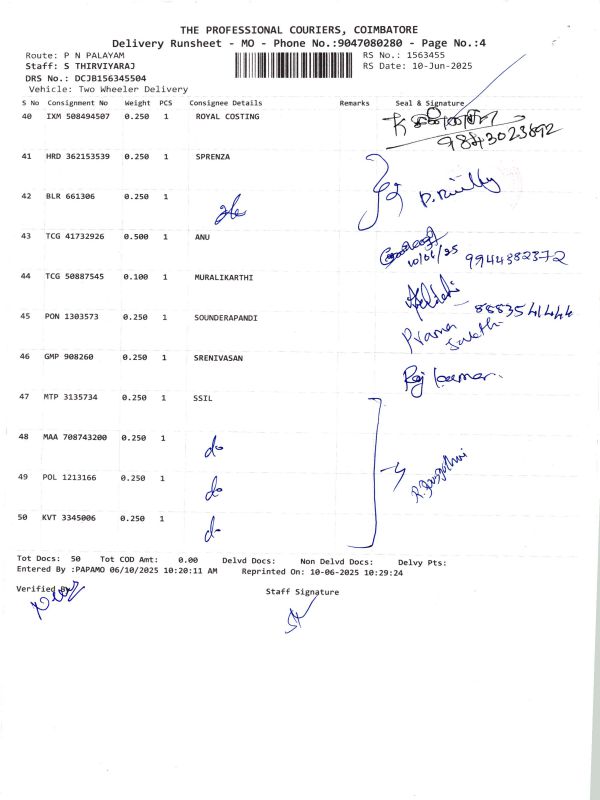 THE PROFESSIONAL COURIERS, COIMBATORE
Delivery Runsheet - MO - Phone No.:9047080280 - Page No.:4
Route: P N PALAYAM
RS No.: 1563455
Staff: S THIRVIYARAJ
RS Date: 10-Jun-2025
DRS No.: DCJB156345504
Vehicle: Two Wheeler Delivery
S No Consignment No Weight PCS Consignee Details Remarks Seal & Signature
40 IXM 508494507 0.250 1 ROYAL COSTING
9843023892
41 HRD 362153539 0.250 1 SPRENZA
42 BLR 661306 0.250 1
43 TCG 41732926 0.500 1 ANU
10/06/25 9944382372
44 TCG 50887545 0.100 1 MURALIKARTHI
8883541444
45 PON 1303573 0.250 1 SOUNDERAPANDI
46 GMP 908260 0.250 1 SRENIVASAN
Raj kumar.
47 MTP 3135734 0.250 1 SSIL
48 MAA 708743200 0.250 1 do
49 POL 1213166 0.250 1 do
50 KVT 3345006 0.250 1 do
Tot Docs: 50 Tot COD Amt: 0.00 Delvd Docs: Non Delvd Docs: Delvy Pts:
Entered By :PAPAMO 06/10/2025 10:20:11 AM Reprinted On: 10-06-2025 10:29:24
Verified By
Staff Signature